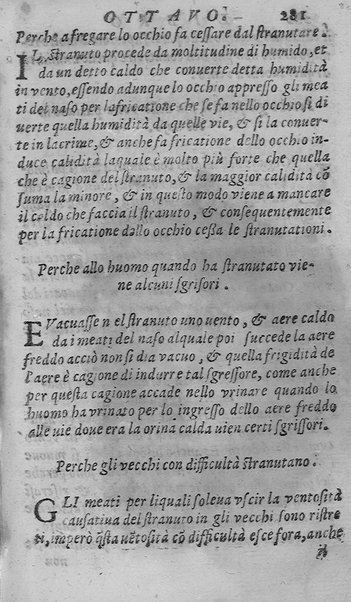 OTTAVO. 281
Perche a fregare lo occhio fa cessare dal stranutare.
IL stranuto procede da moltitudine di humido, et
da un detto caldo che conuerte detta humidità
in vento, essendo adunque lo occhio appresso gli mea
ti del naso per la fricatione che se fa nello occhio si di
uerte quella humidità da quelle vie, & si la conuer-
te in lacrime, & anche fa fricatione dello occhio in-
duce calidità laquale è molto più forte che quella
che è cagione del stranuto, & la maggior calidità cō
suma la minore, & in questo modo viene a mancare
il caldo che faccia il stranuto, & consequentemente
per la fricatione dello occhio cessa le stranutationi.
Perche allo huomo quando ha stranutato vie-
ne alcuni sgrisori.
EVacuasse n el stranuto uno uento, & aere caldo
da i meati del naso alquale poi succede la aere
freddo acciò non si dia vacuo, & quella frigidità de
l'aere è cagione di indurre tal sgressore, come anche
per questa cagione accade nello vrinare quando lo
huomo ha vrinato per lo ingresso dello aere freddo
alle uie doue era la orina calda uien certi sgrissori.
Perche gli vecchi con difficultà stranutano.
GLI meati per liquali soleua vscir la ventosità
causatiua del stranuto in gli vecchi sono ristre
ti, imperò q̄sta uētosità cō difficultà esce fora, anche